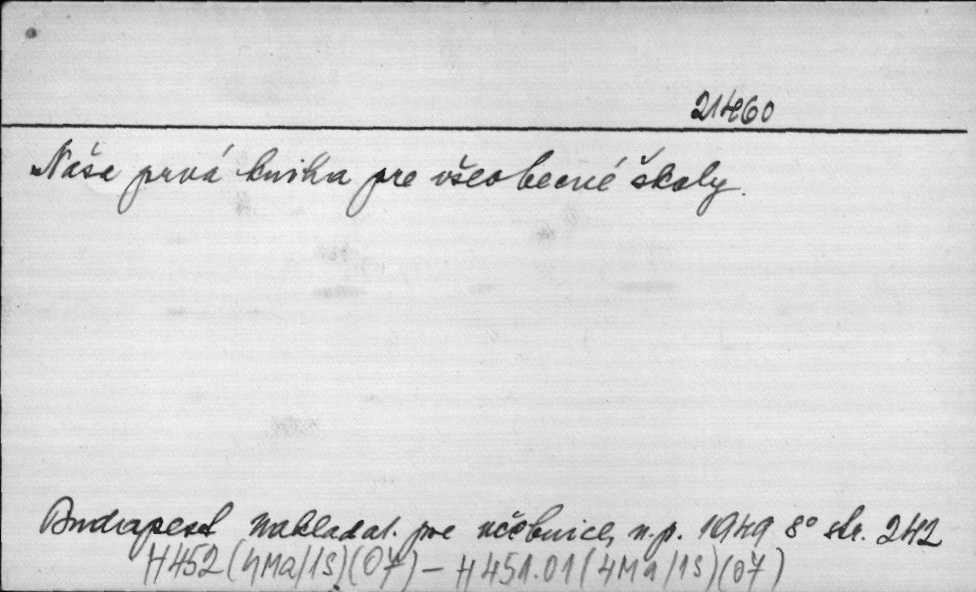 21460
Náša prvá kniha pre všeobecné školy.
Budapest Nakladat. pre učebnice, n.p. 1949 8° str. 242
H452(4Ma/1S)(07) – H451.01(4Ma/1S)(07)